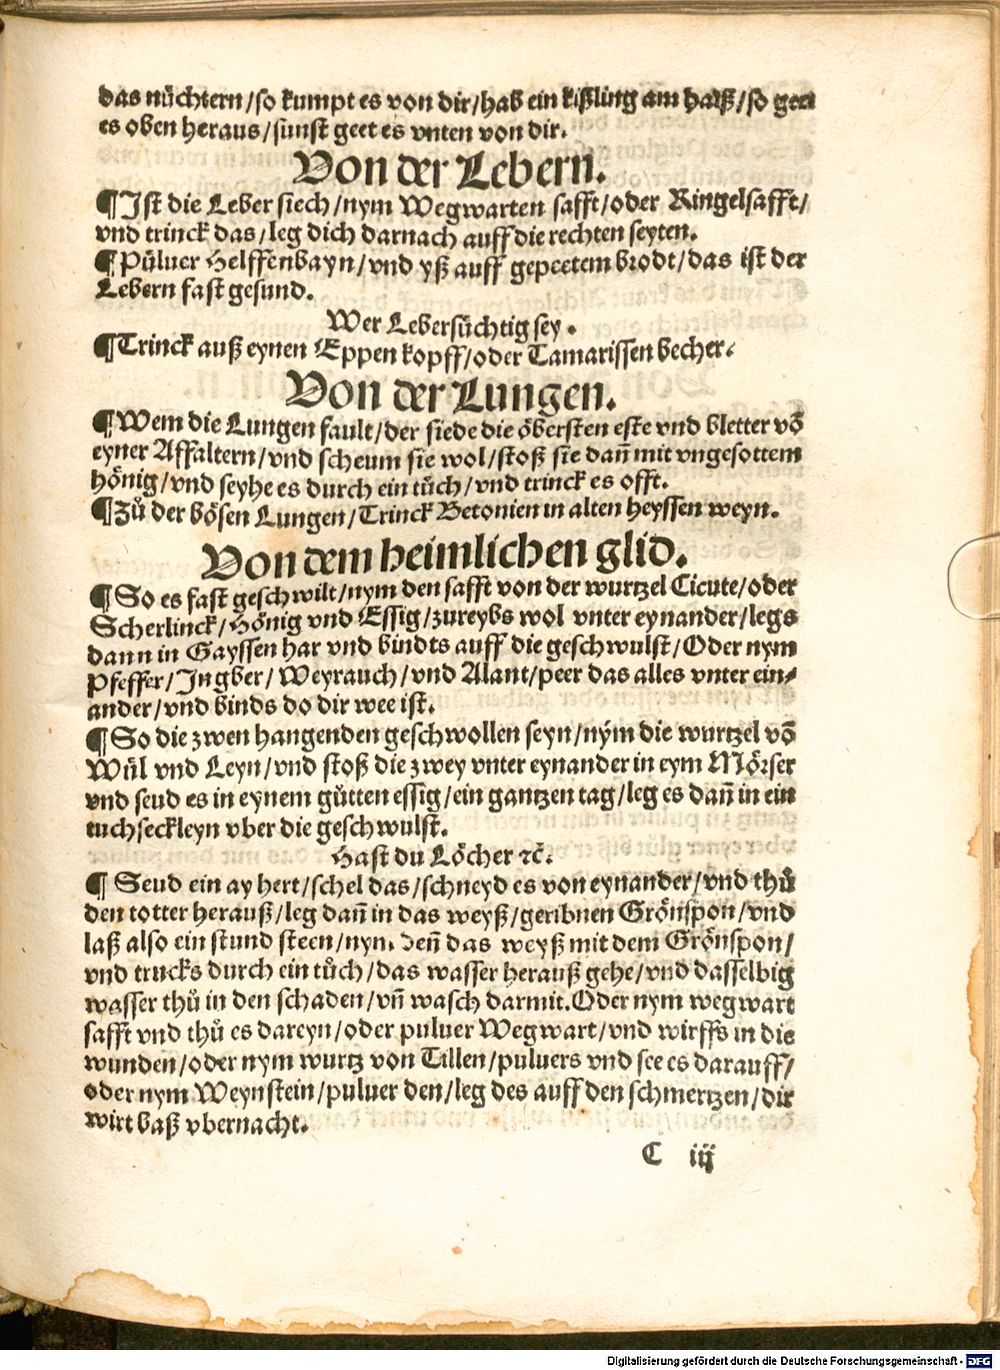 das nüchtern/so kumpt es von dir/hab ein kißling am halß/so geet
es oben heraus/sunst geet es vnten von dir.
Von der Lebern.
¶Ist die Leber siech/nym Wegwarten safft/oder Ringelsafft/
vnd trinck das/leg dich darnach auff die rechten seyten.
¶Püluer Helffenbayn/vnd yß auff gepeetem brodt/das ist der
Lebern fast gesund.
Wer Lebersüchtig sey.
¶Trinck auß eynen Eppen kopff/oder Tamarissen becher.
Von der Lungen.
¶Wem die Lungen fault/der siede die öbersten este vnd bletter võ
eyner Affaltern/vnd scheum sie wol/stoß sie dañ mit vngesottem
hönig/vnd seyhe es durch ein tüch/vnd trinck es offt.
¶Zů der bösen Lungen/Trinck Betonien in alten heyssen weyn.
Von dem heimlichen glid.
¶So es fast geschwilt/nym den safft von der wurtzel Cicute/oder
Scherlinck/Hönig vnd Essig/zureybs wol vnter eynander/legs
dann in Gayssen har vnd bindts auff die geschwulst/Oder nym
Pfeffer/Ingber/Weyrauch/vnd Alant/peer das alles vnter ein⸗
ander/vnd binds do dir wee ist.
¶So die zwen hangenden geschwollen seyn/nym die wurtzel võ
Wül vnd Leyn/vnd stoß die zwey vnter eynander in eym Mörser
vnd seud es in eynem gütten essig/ein gantzen tag/leg es dañ in ein
tuchseckleyn vber die geschwulst.
Hast du Löcher ꝛč.
¶ Seud ein ay hert/schel das/schneyd es von eynander/vnd thů
den totter herauß/leg dañ in das weyß/geribnen Grönspon/vnd
laß also ein stund steen/nym deñ das weyß mit dem Grönspon/
vnd trucks durch ein tůch/das wasser herauß gehe/vnd dasselbig
wasser thů in den schaden/vñ wasch darmit.Oder nym wegwart
safft vnd thů es dareyn/oder puluer Wegwart/vnd wirffs in die
wunden/oder nym wurtz von Tillen/puluers vnd see es darauff/
oder nym Weynstein/puluer den/leg des auff den schmertzen/dir
wirt baß vbernacht.
C iij
Digitalisierung gefördert durch die Deutsche Forschungsgemeinschaft - DFG